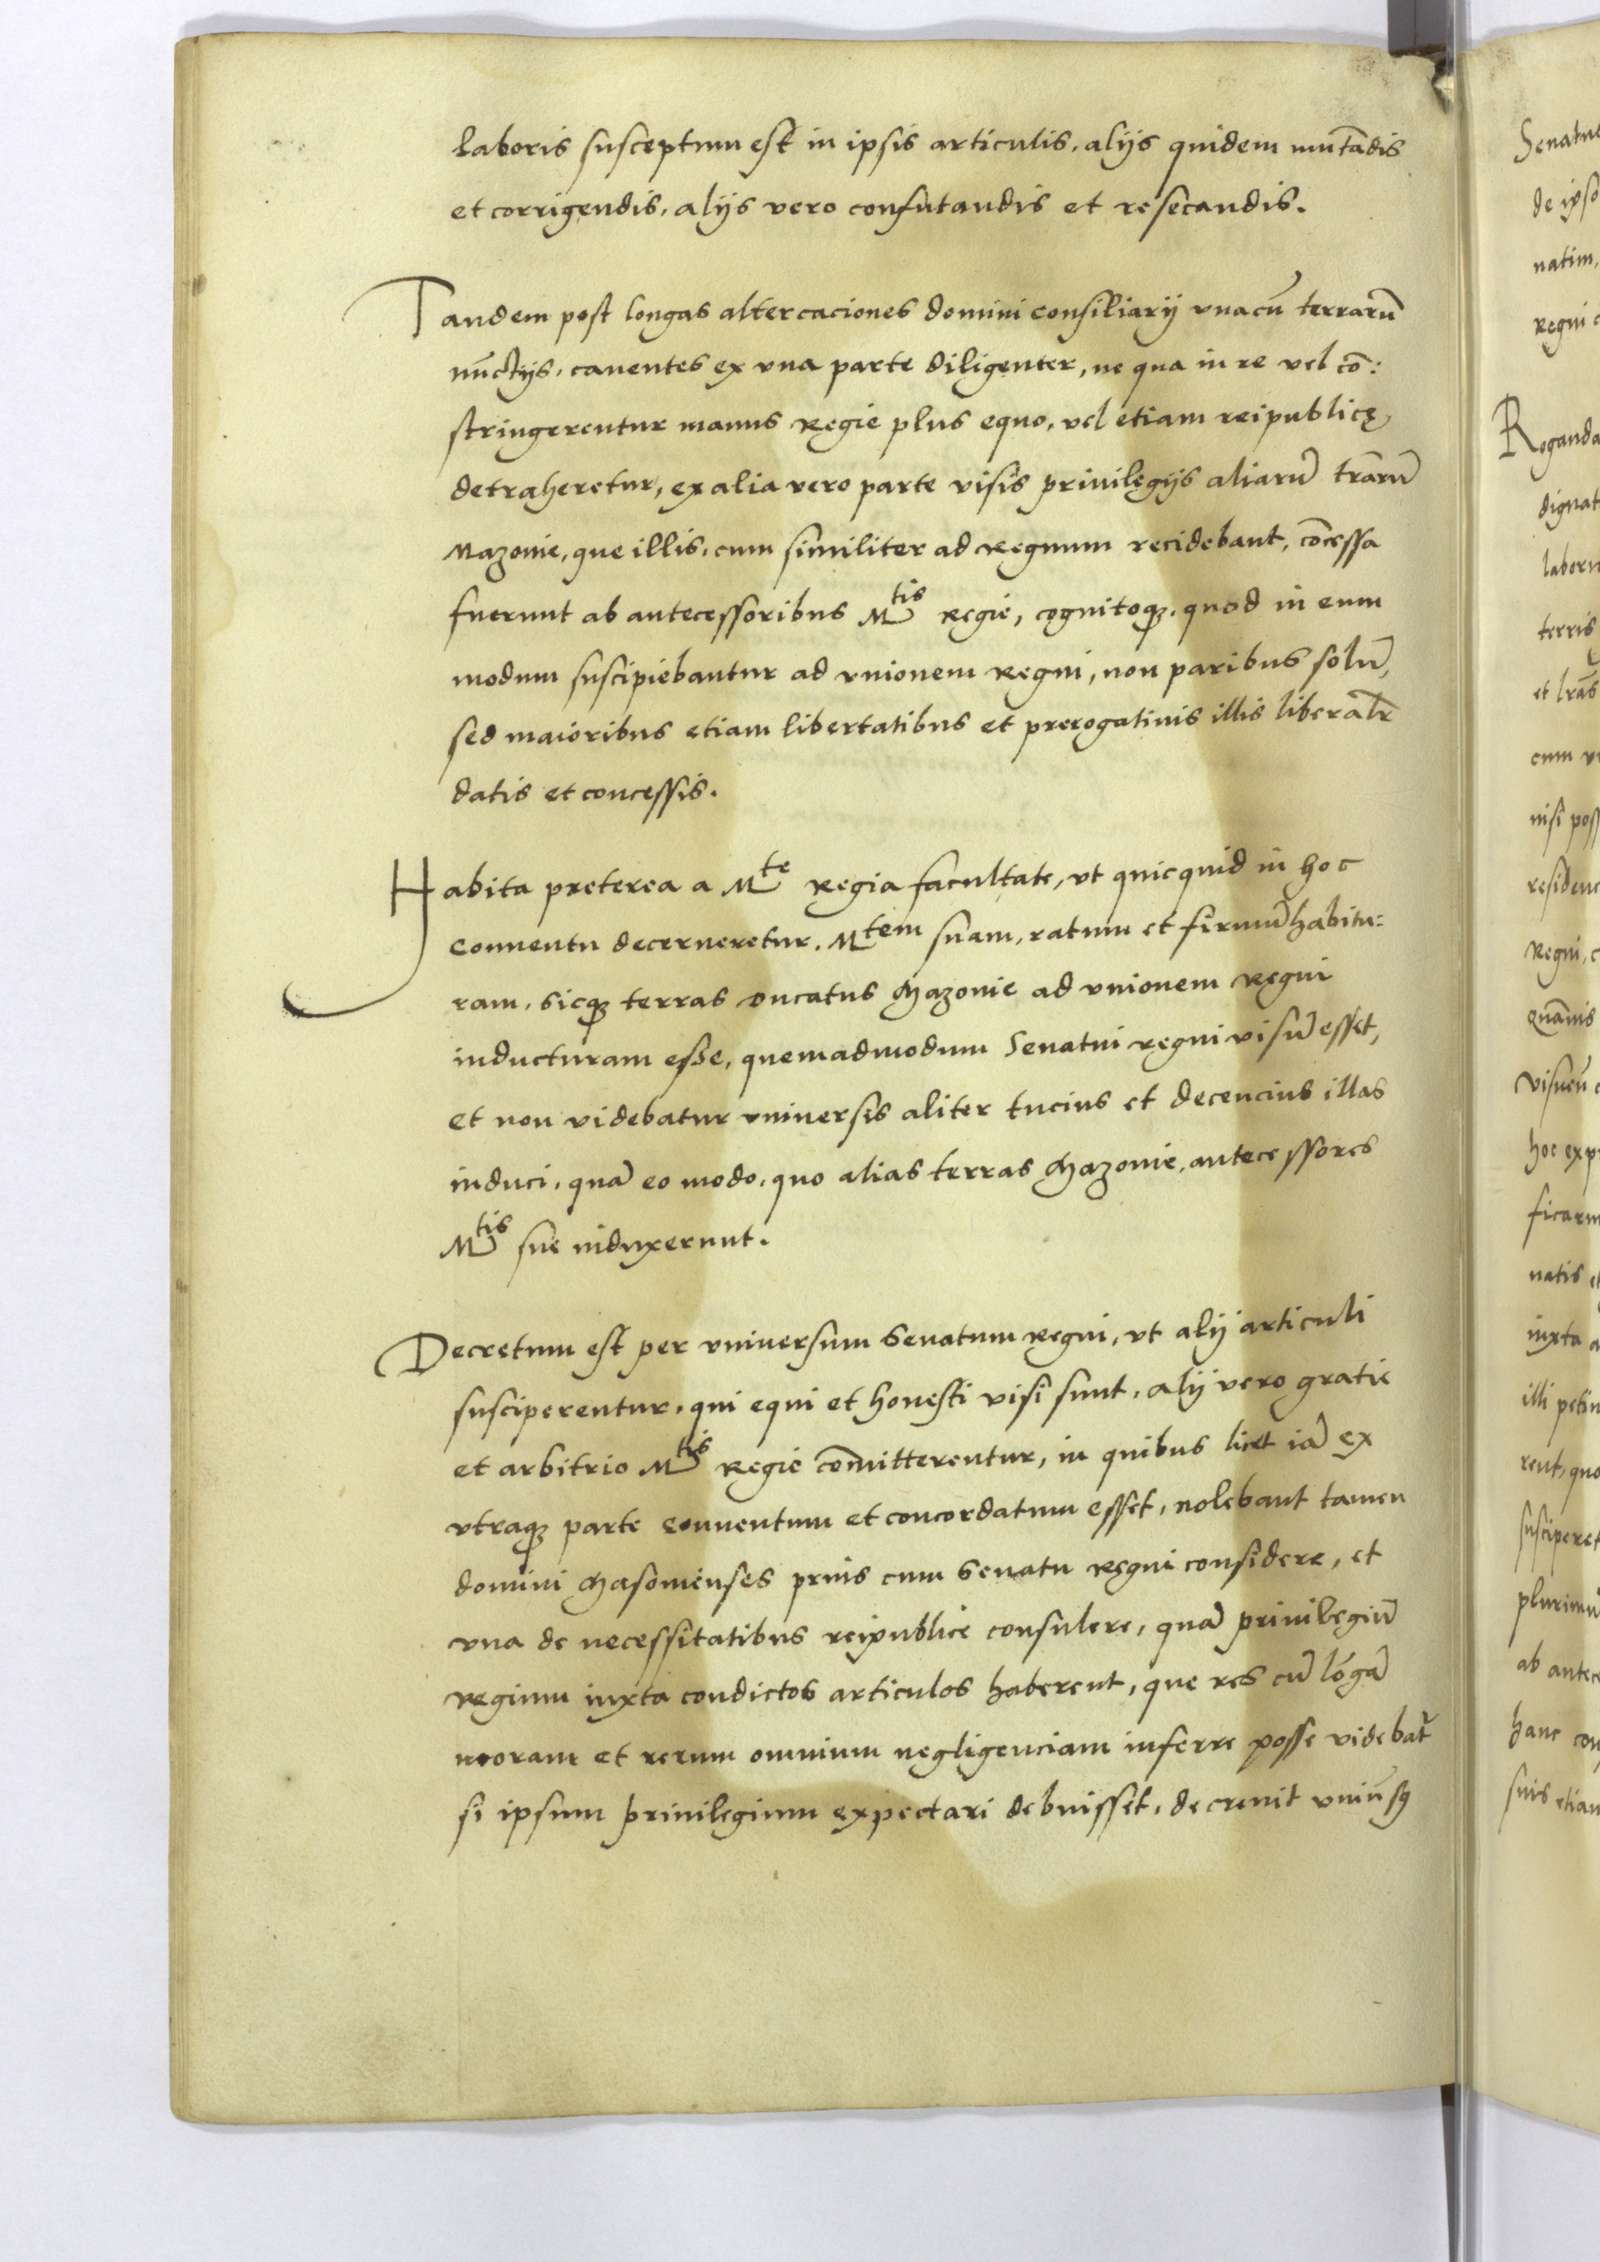 laboris susceptum est in ipsis articulis, alijs quidem mutãdis
et corrigendis, alijs vero confutandis et resecandis.
Tandem post longas altercaciones domini consiliarij vnacũ terrarũ
nũctijs, cauentes ex vna parte diligenter, ne qua in re vel cõ:
stringerentur manus Regie plus equo, vel etiam reipublicę
detraheretur, ex alia vero parte visis priuilegijs aliarũ trãrũ
Mazouie, que illis, cum similiter ad Regnum recidebant, cõcessa
fuerunt ab antecessoribus M^tis Regie, cognitoqꝫ, quod in eum
modum suscipiebantur ad vnionem Regni, non paribus solũ,
sed maioribus etiam libertatibus et prerogatiuis illis liberalr̃
datis et concessis.
Habita preterea a M^te Regia facultate, vt quicquid in hoc
conuentu decerneretur, M^tem suam, ratum et firmũ habitu:
ram, sicqꝫ terras Ducatus Mazouie ad vnionem Regni
inducturam esse, quemadmodum Senatui regni visũ esset,
et non videbatur vniuersis aliter tucius et decencius illas
induci, quã eo modo, quo alias terras Mazouie, antecessores
M^tis sue induxerunt.
Decretum est per vniuersum Senatum Regni, vt alij articuli
susciperentur, qui equi et honesti visi sunt, alij vero gratie
et arbitrio M^tis Regie cõmitterentur, in quibus licet iã ex
vtraqꝫ parte conuentum et concordatum esset, nolebant tamen
domini Masouienses prius cum Senatu Regni considere, et
vna de necessitatibus reipublice consulere, quã priuilegiũ
regium iuxta condictos articulos haberent, que res cũ lõgã
moram et rerum omnium negligenciam inferre posse videbat̃
si ipsum priuilegium expectari debuisset, decreuit vniũsꝗ
Senatus
de ipso
natim,
Regni
Roganda
dignat
terris
et lrãs
cum
nisi poss
residenc
Regni,
quãuis
hoc exp
natis
iuxta
illi petiu
rent, quo
susciperet
plurimũ
ab antece
hanc con
suis etiam